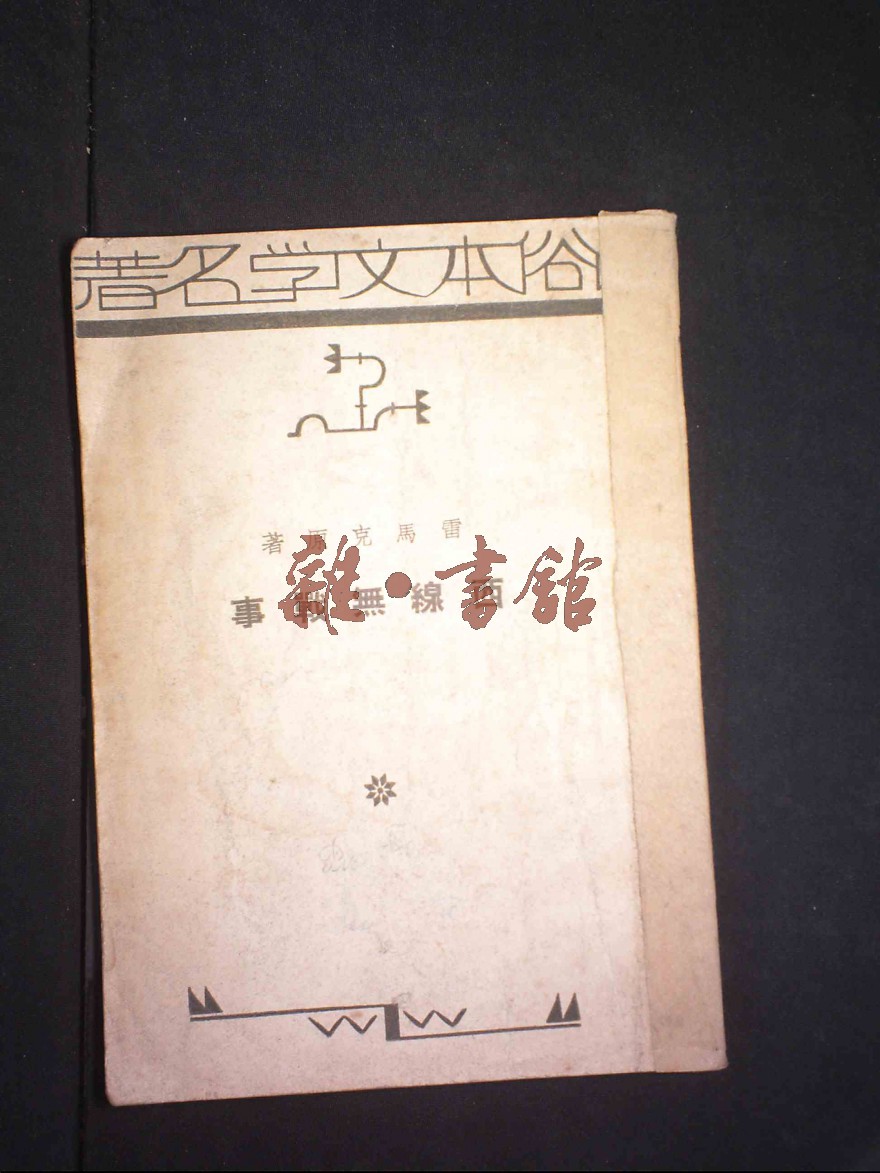 俗本文学名著
雷馬克原著
西線無戰事
雜•書館